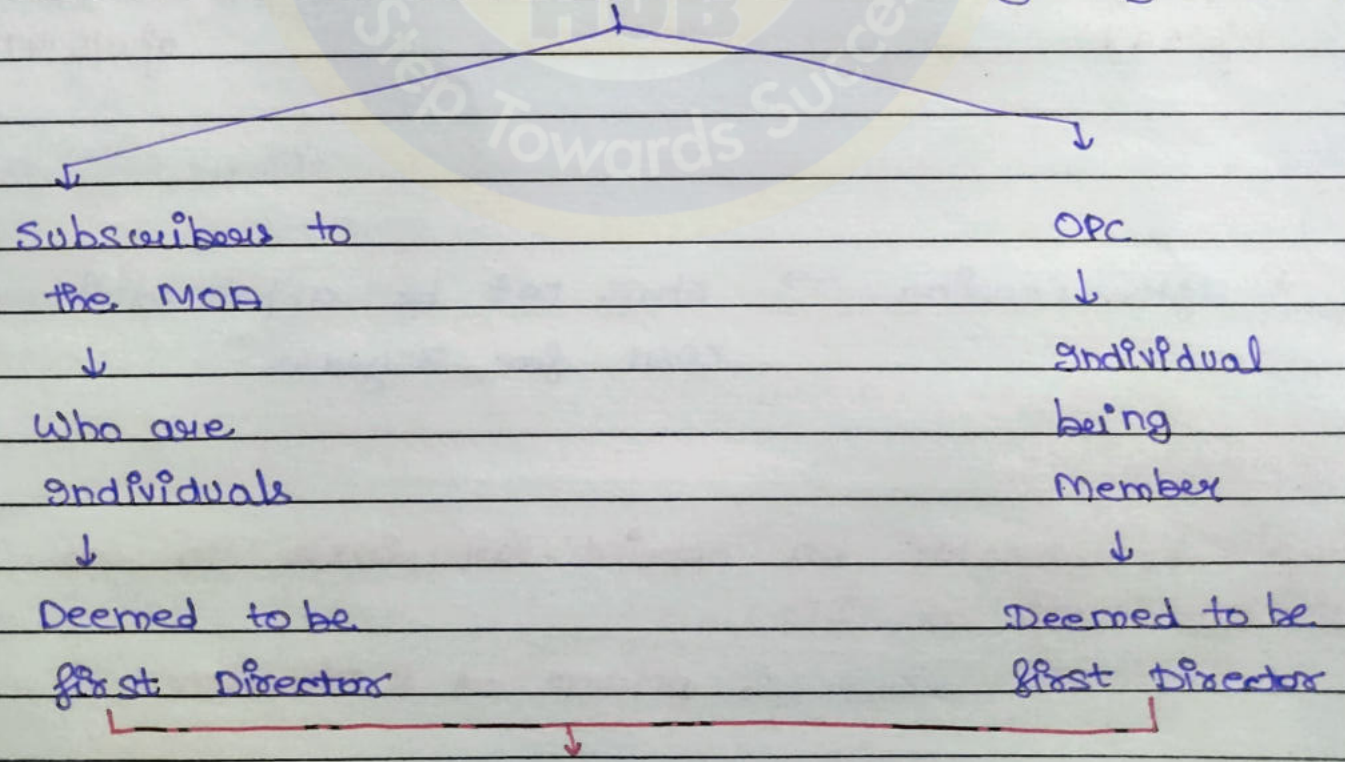 HUB
Step Towards Success
Subscribers to
the MOA
↓
Who are
individuals
↓
Deemed to be
first Director
OPC
↓
individual
being
Member
↓
Deemed to be
first Director